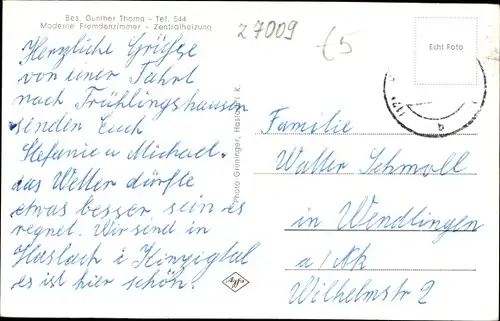 Bes. Günther Thoma - Tel. 544
Moderne Fremdenzimmer - Zentralheizung
27009
€5
Echt Foto
Herzliche Grüsse
von einer Fahrt
nach Frühlingshausen
senden Euch
Stefanie u Michael.
das Wetter dürfte
etwas besser sein es
regnet. Wir send in
Haslach i Kinzigtal
es ist hier schön.
Photo Grüninger, Haslach i. K.
Familie
Walter Schmoll
in Wendlingen
a/Nk
Wilhelmstr 2